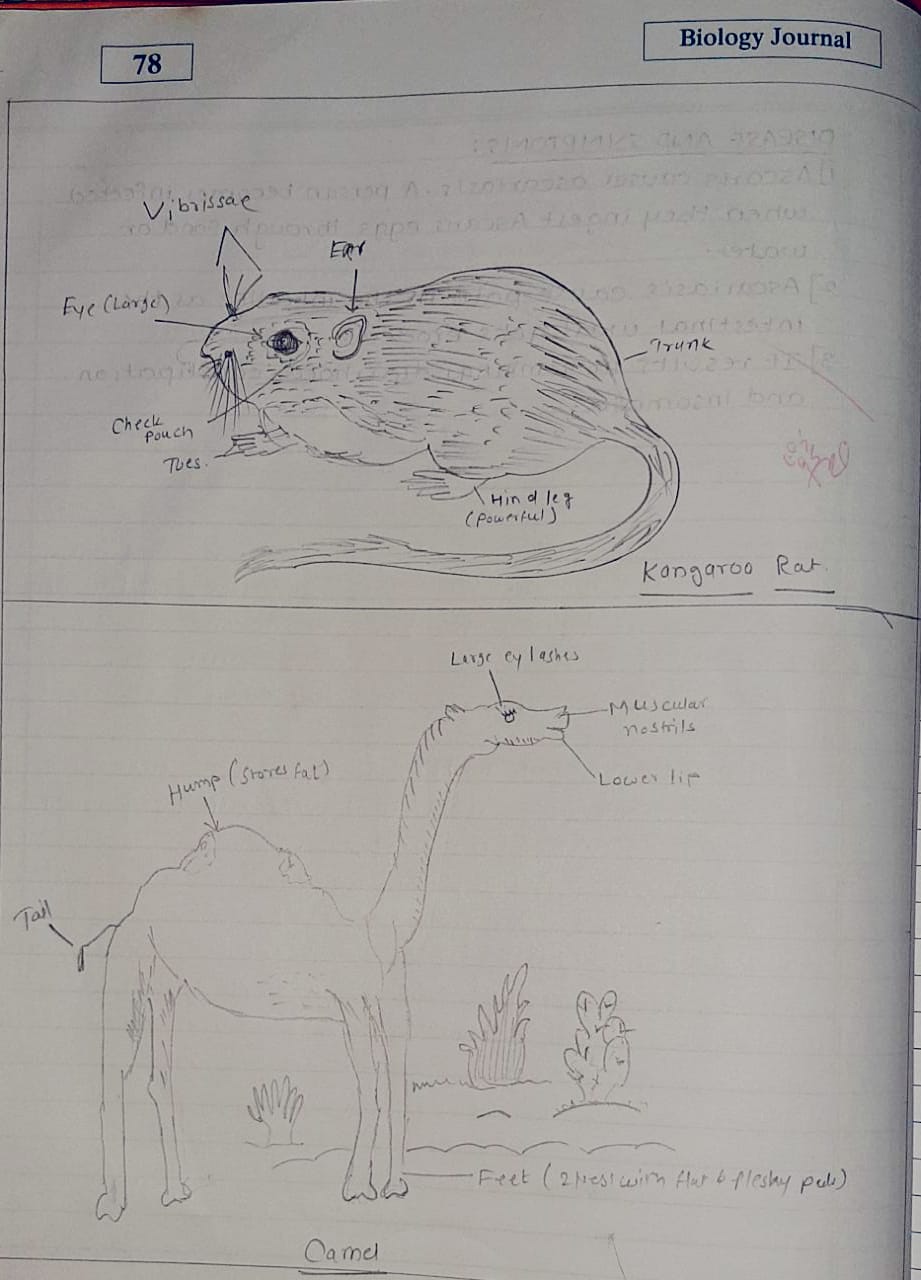 78
Biology Journal
Vibrissae
Ear
Eye (Large)
Trunk
Check
Pouch
Toes.
Hind leg
(Powerful)
Kangaroo Rat.
Large eylashes
Muscular
nostrils
Lower lip
Hump (Stores fat)
Tail
Feet (2 toes with flat & fleshy pads)
Camel